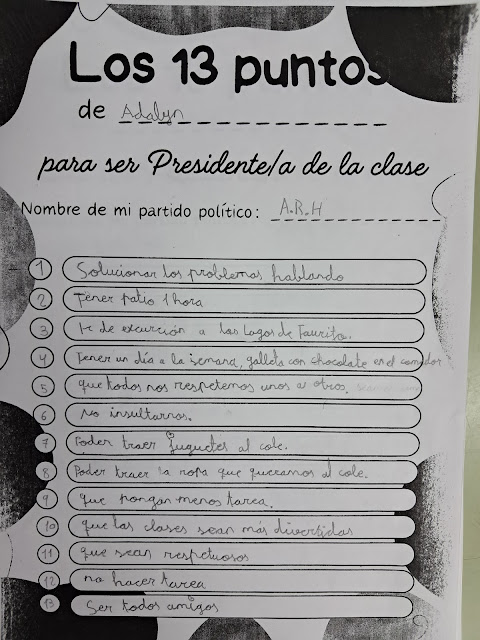 Los 13 puntos
de Adalyn
para ser Presidente/a de la clase
Nombre de mi partido político: A.R.H
1 Solucionar los problemas hablando
2 Tener patio 1 hora
3 Ir de excurción a las Lagos de Taurito.
4 Tener un día a la semana, galleta con chocolate en el comedor
5 que todos nos respetemos unos a otros.
6 No insultarnos.
7 Poder traer juguetes al cole.
8 Poder traer la ropa que queramos al cole.
9 que pongan menos tarea.
10 que las clases sean más divertidas
11 que sean respetuosos
12 no hacer tarea
13 Ser todos amigos